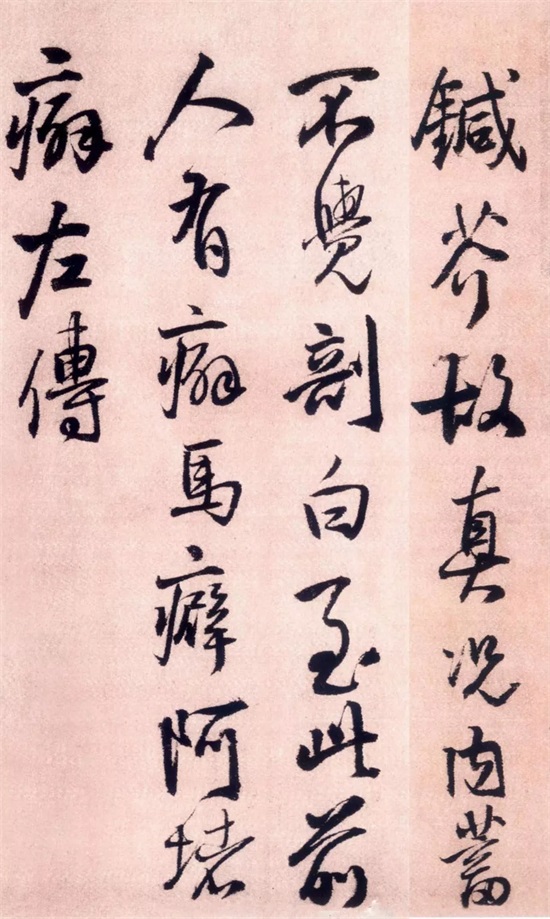 鍼芥故真况内蓄
不覺剖白至此前
人有癖馬癖阿堵
癖左傳